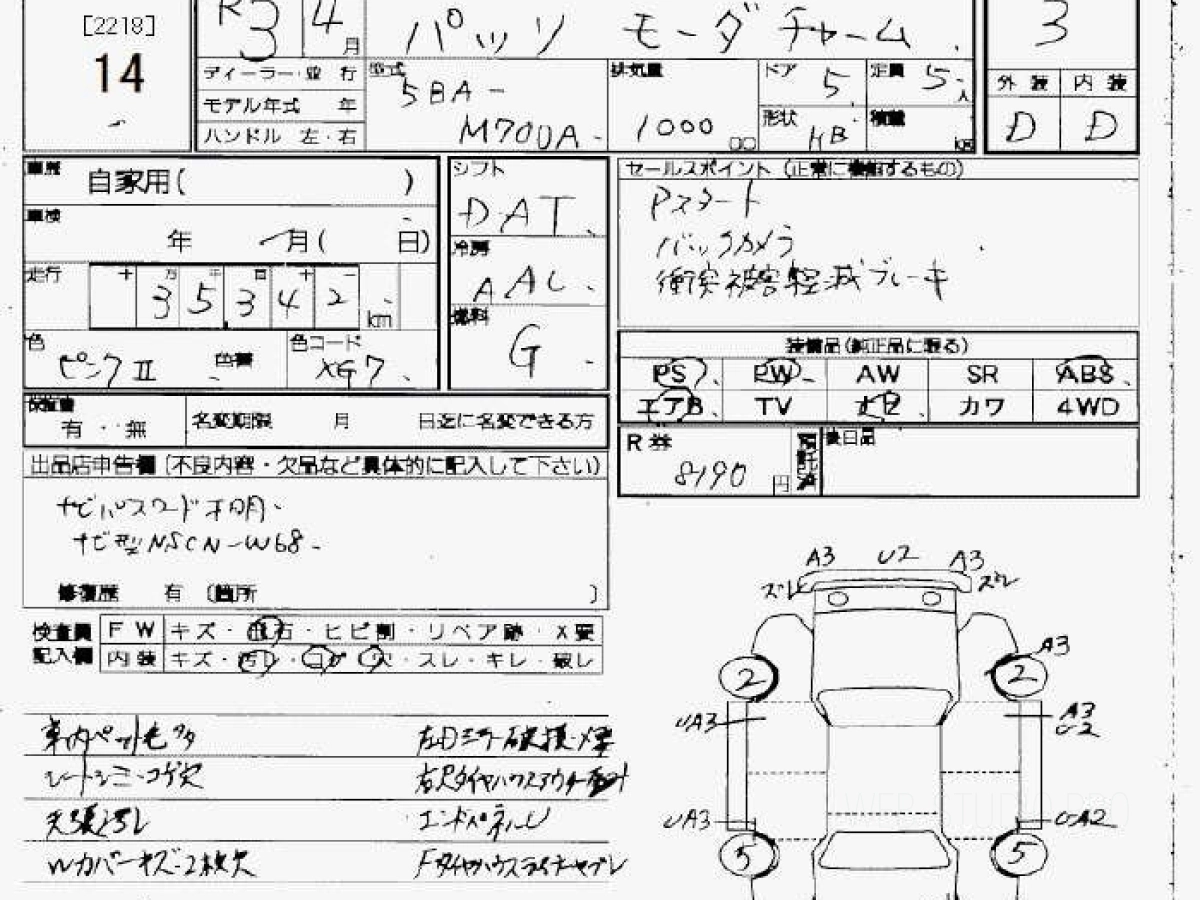 [2218]
14
R3 4月
パッソ モーダチャーム
3
ディーラー・並行
モデル年式 年
ハンドル 左・右
型式
5BA-
M700A
排気量
1000 cc
ドア 5 定員 5人
形状 HB 積載 kg
外装 内装
D D
車歴
自家用( )
車検
年 月( 日)
走行 十 万 千 百 十 一
35,342 km
色
ピンクII 色替
色コード
XG7
シフト
DAT
冷房
AAC
燃料
G
セールスポイント (正常に機能するもの)
Pスタート
バックカメラ
衝突被害軽減ブレーキ
装備品(純正品に限る)
PS PW AW SR ABS
エアB TV ナビ カワ 4WD
R券
8190 円 預託済
後日品
保証書
有・無
名変期限 月 日迄に名変できる方
出品店申告欄(不良内容・欠品など具体的に記入して下さい)
ナビパスワード不明
ナビ型NSCN-W68
修復歴 有 [箇所 ]
検査員
記入欄
FW キズ・飛石・ヒビ割・リペア跡・X要
内装 キズ・汚レ・コゲ穴・スレ・キレ・破レ
車内ペット毛多
シートシミ・コゲ穴
天張汚レ
Wカバーキズ・2枚欠
エンドパネルU
A3 U2 A3
ズレ ズレ
A3
2 2
UA3
A3
U2
UA3
UA2
5 5